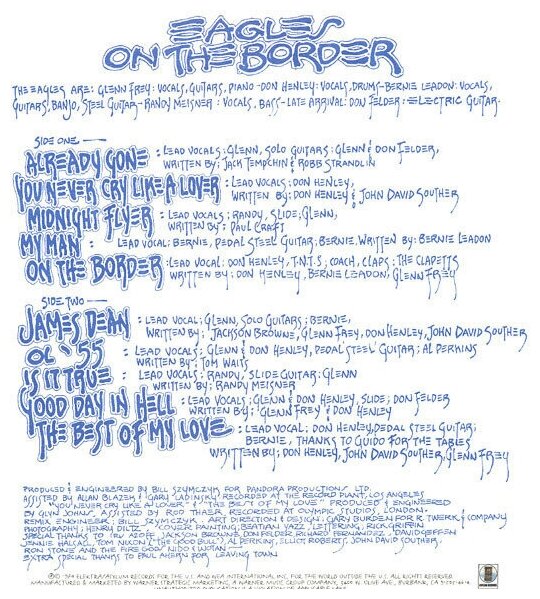 EAGLES
ON THE BORDER
THE EAGLES ARE: GLENN FREY: VOCALS, GUITARS, PIANO-DON HENLEY: VOCALS, DRUMS-BERNIE LEADON: VOCALS,
GUITARS, BANJO, STEEL GUITAR-RANDY MEISNER: VOCALS, BASS-LATE ARRIVAL: DON FELDER: ELECTRIC GUITAR
SIDE ONE
ALREADY GONE : LEAD VOCALS: GLENN, SOLO GUITARS: GLENN & DON FELDER,
WRITTEN BY: JACK TEMPCHIN & ROBB STRANDLIN
YOU NEVER CRY LIKE A LOVER : LEAD VOCALS: DON HENLEY,
WRITTEN BY: DON HENLEY & JOHN DAVID SOUTHER
MIDNIGHT FLYER : LEAD VOCALS: RANDY, SLIDE; GLENN,
WRITTEN BY: PAUL CRAFT
MY MAN : LEAD VOCAL: BERNIE, PEDAL STEEL GUITAR: BERNIE. WRITTEN BY: BERNIE LEADON
ON THE BORDER : LEAD VOCAL: DON HENLEY, T.N.T.S; COACH, CLAPS: THE CLAPETTS
WRITTEN BY: DON HENLEY, BERNIE LEADON, GLENN FREY
SIDE TWO
JAMES DEAN : LEAD VOCAL: GLENN, SOLO GUITARS: BERNIE,
WRITTEN BY: JACKSON BROWNE, GLENN FREY, DON HENLEY, JOHN DAVID SOUTHER
OL' 55 : LEAD VOCALS: GLENN & DON HENLEY, PEDAL STEEL GUITAR: AL PERKINS
WRITTEN BY: TOM WAITS
IS IT TRUE : LEAD VOCALS: RANDY, SLIDE GUITAR: GLENN
WRITTEN BY: RANDY MEISNER
GOOD DAY IN HELL : LEAD VOCALS: GLENN & DON HENLEY, SLIDE: DON FELDER
WRITTEN BY: GLENN FREY & DON HENLEY
THE BEST OF MY LOVE : LEAD VOCAL: DON HENLEY, PEDAL STEEL GUITAR:
BERNIE, THANKS TO GUIDO FOR THE TABLES
WRITTEN BY: DON HENLEY, JOHN DAVID SOUTHER, GLENN FREY
PRODUCED & ENGINEERED BY BILL SZYMCZYK FOR PANDORA PRODUCTIONS LTD.
ASSISTED BY ALLAN BLAZEK & GARY LADINSKY, RECORDED AT THE RECORD PLANT, LOS ANGELES
"YOU NEVER CRY LIKE A LOVER" & "THE BEST OF MY LOVE" PRODUCED & ENGINEERED
BY GLYN JOHNS, ASSISTED BY ROD THAER, RECORDED AT OLYMPIC STUDIOS, LONDON.
REMIX ENGINEER: BILL SZYMCZYK - ART DIRECTION & DESIGN: GARY BURDEN FOR R. TWERK & COMPANY
PHOTOGRAPHY: HENRY DILTZ - COVER PAINTING: BEATIAN YAZZ, LETTERING, RICK GRIFFIN
SPECIAL THANKS TO: IRV AZOFF, JACKSON BROWNE, DON FELDER, RICHARD FERNANDEZ, DAVID GEFFEN
JENNIE HALSALL, TOM NIXON & (THE GOOD BULL), AL PERKINS, ELLIOT ROBERTS, JOHN DAVID SOUTHER.
RON STONE AND THE FIRE GODS NIDS & WOTAN
EXTRA SPECIAL THANKS TO PAUL AHERN FOR LEAVING TOWN
© 1974 ELEKTRA/ASYLUM RECORDS FOR THE U.S. AND WEA INTERNATIONAL INC. FOR THE WORLD OUTSIDE THE U.S. ALL RIGHTS RESERVED.
MANUFACTURED & MARKETED BY WARNER STRATEGIC MARKETING, A WARNER MUSIC GROUP COMPANY, 3400 W. OLIVE AVE., BURBANK, CA